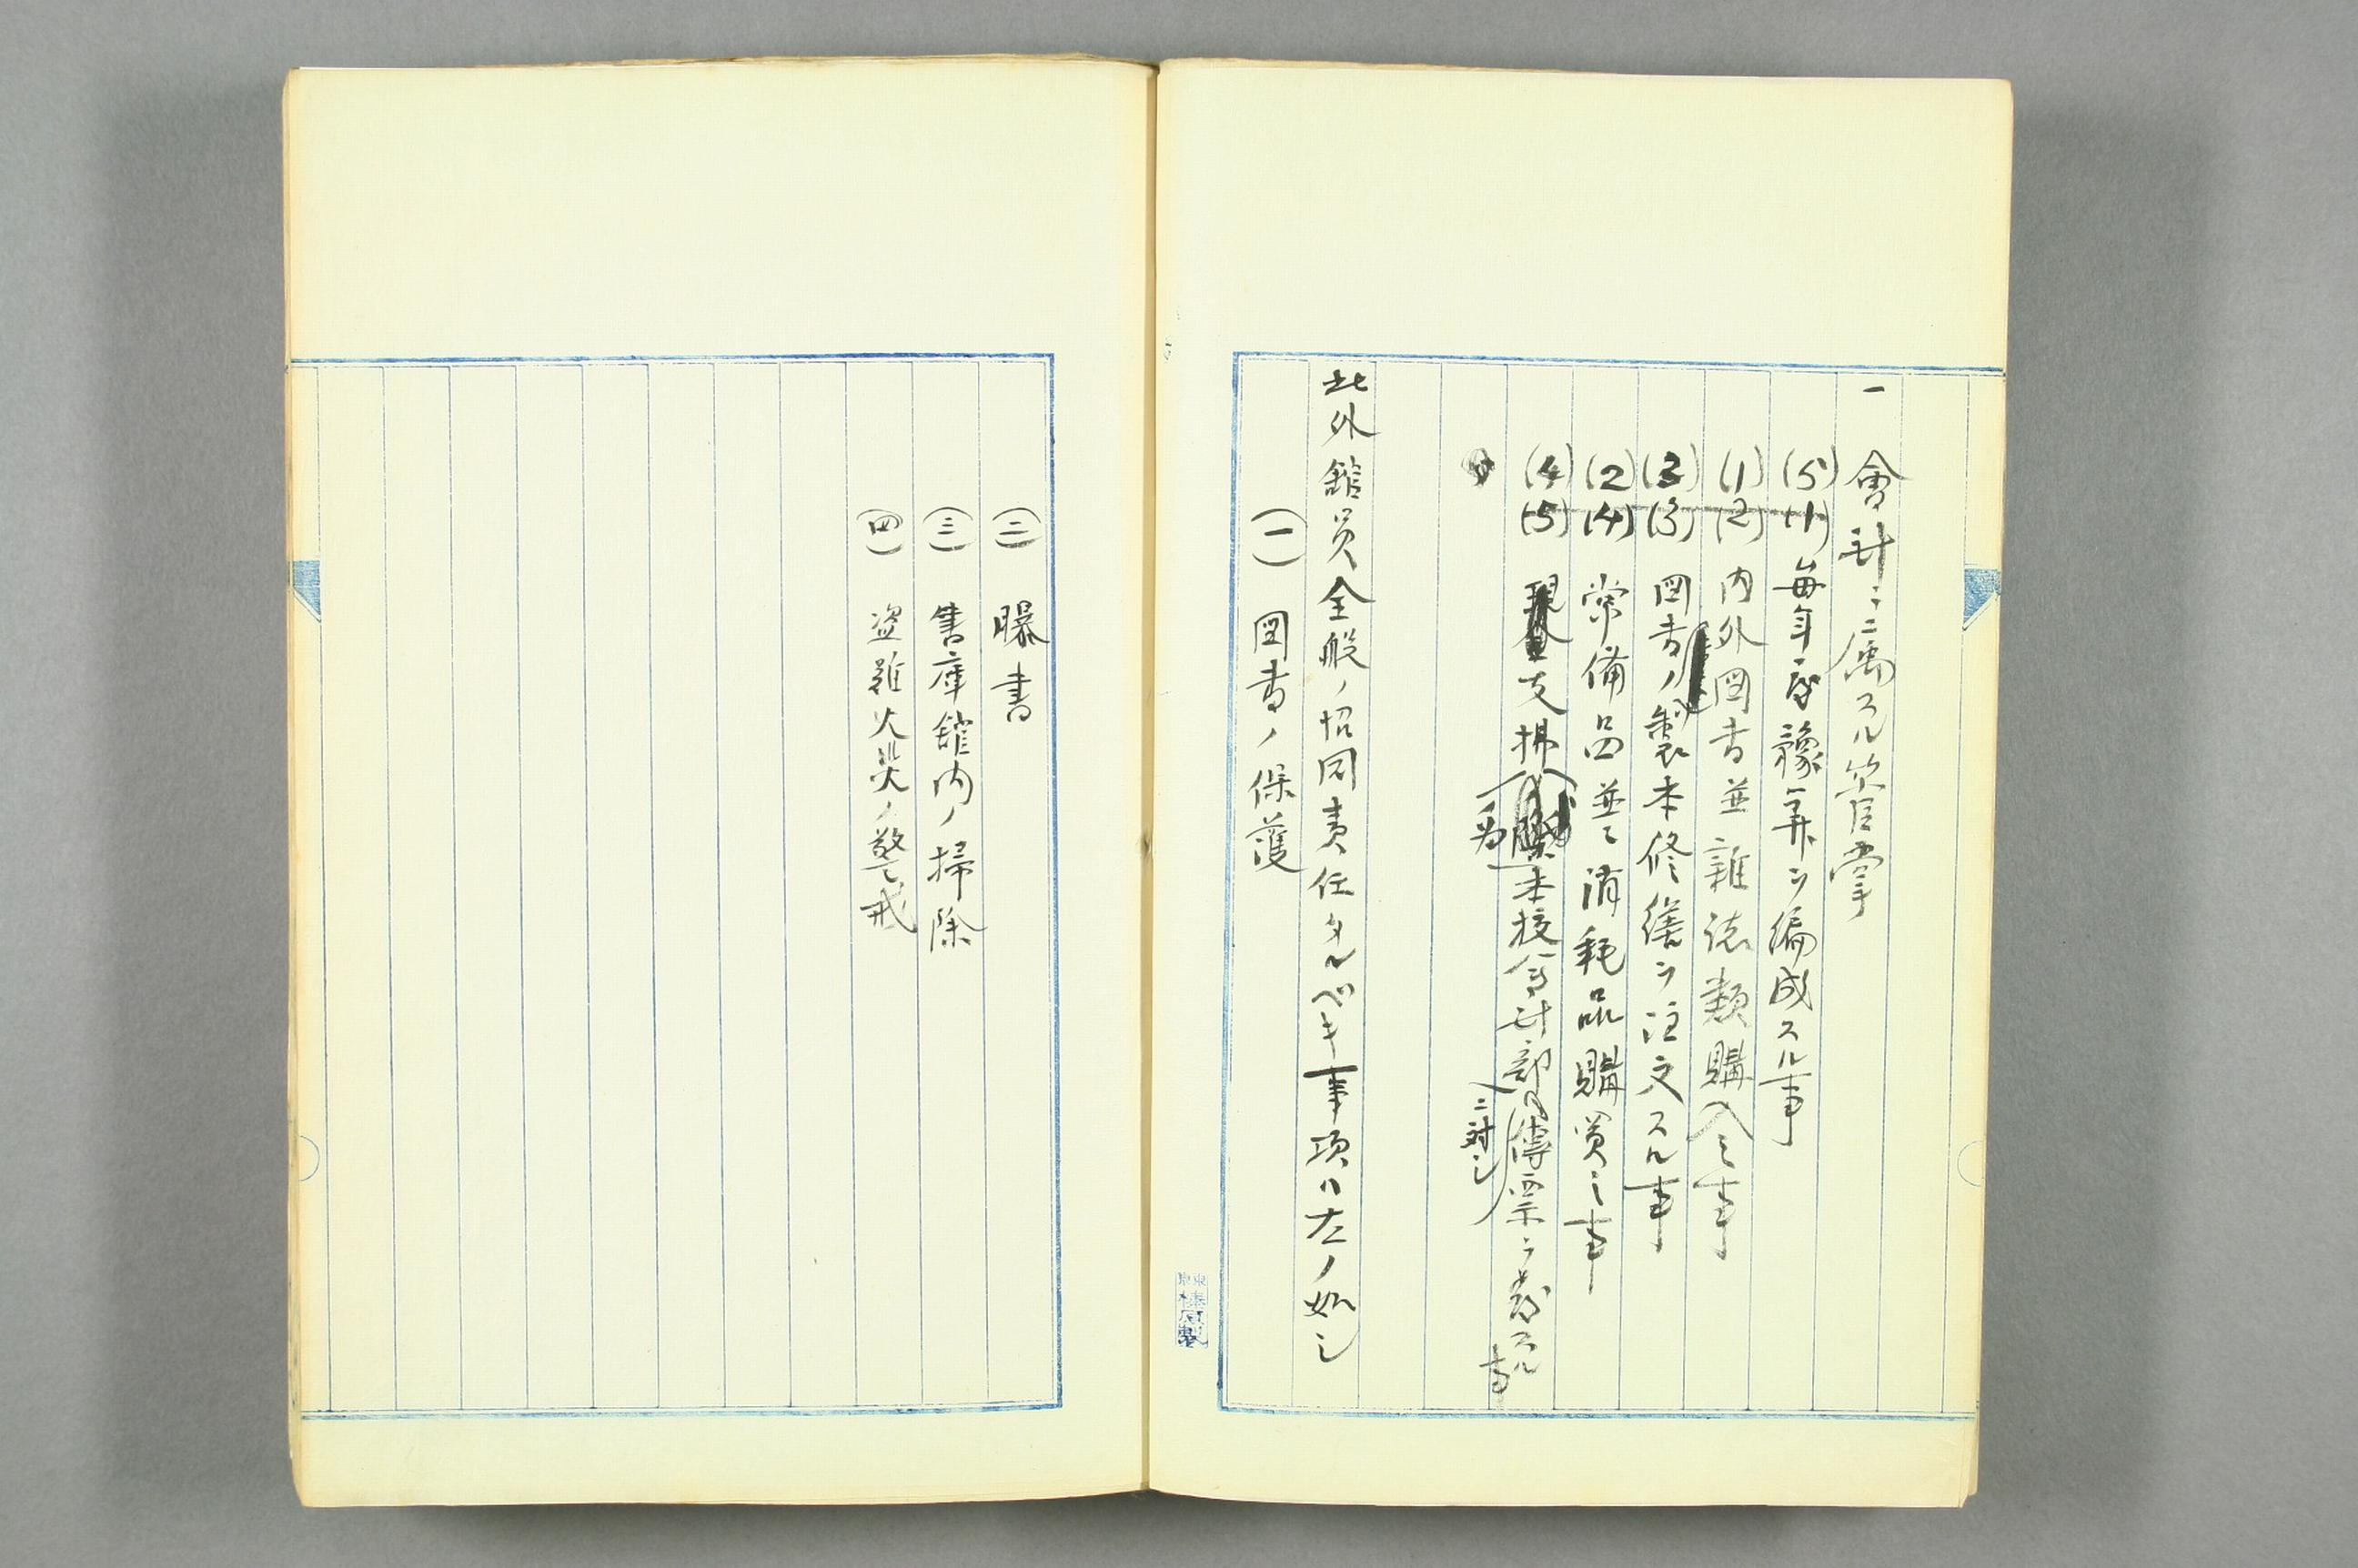 一 會計ニ属スル管掌
(5) (1) 毎年度豫算ヲ編成スル事
(1) (2) 内外図書並雑誌類購入ノ事
(3) (3) 図書ノ製本修繕ヲ注文スル事
(2) (4) 常備品並ニ消耗品購買ノ事
(4) (5) 支拂 為 本校會計部ニ対シ傳票ヲ発スル事
此外館員全般ノ協同責任タルベキ事項ハ左ノ如シ
(一) 図書ノ保護
(二) 曝書
(三) 書庫館内ノ掃除
(四) 盗難火災ノ警戒